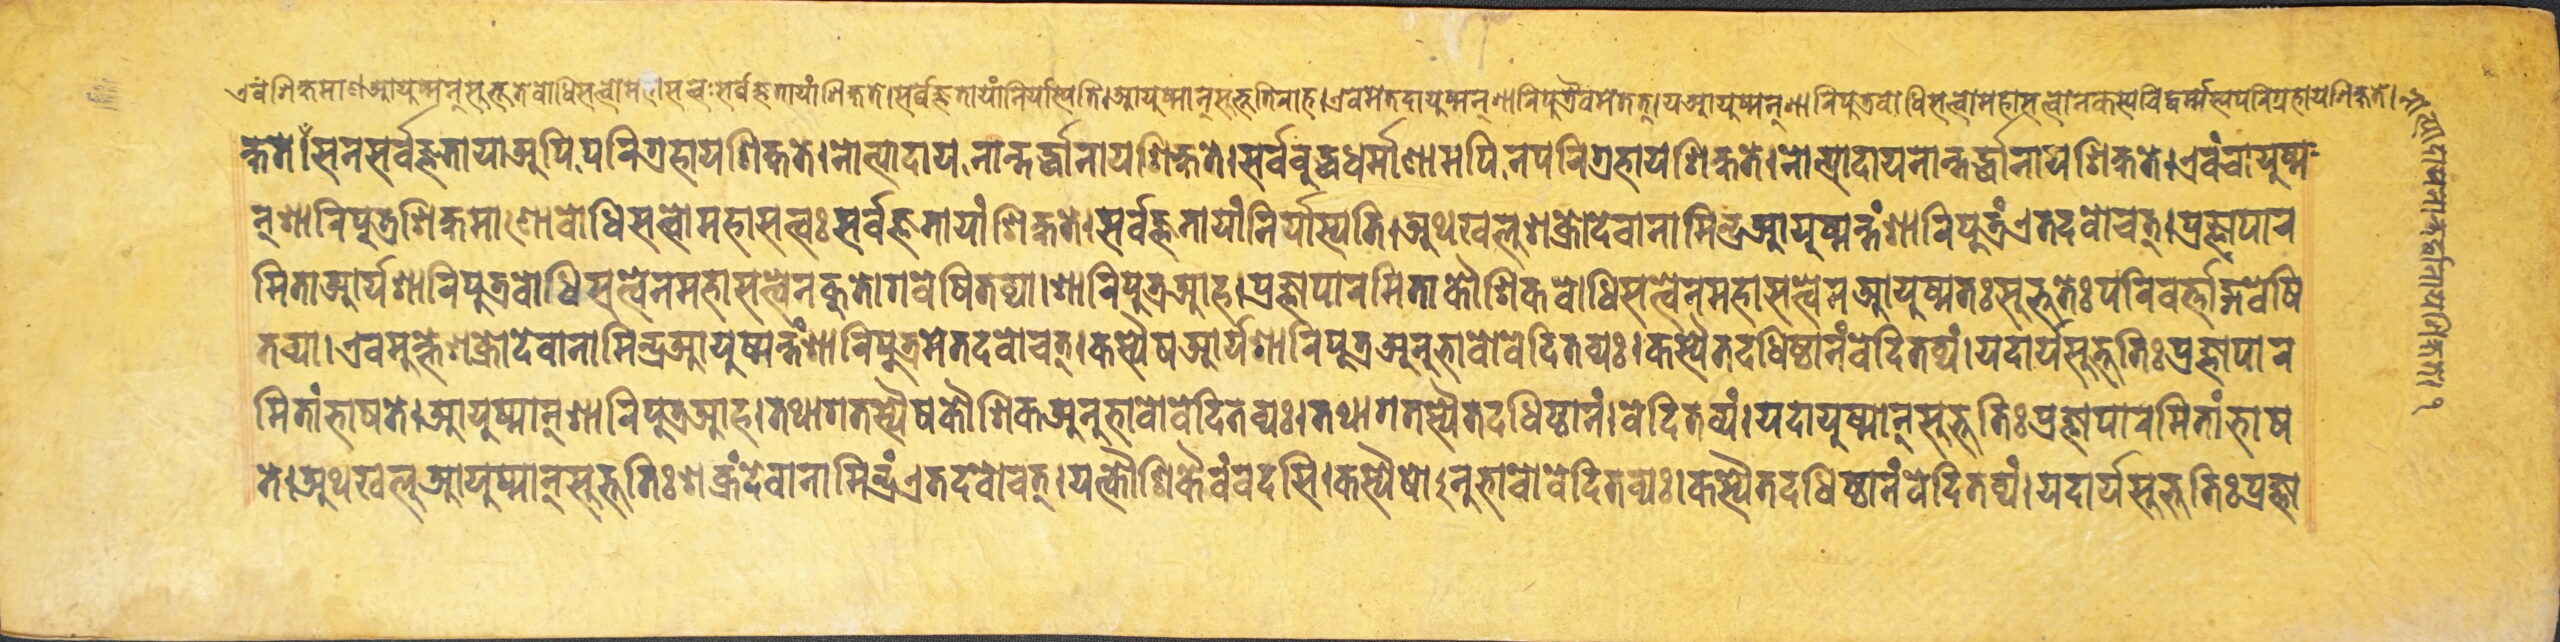 एवं शिक्षमाण आयुष्मन् सुभूते बोधिसत्त्वो महासत्त्वः सर्वज्ञतायां शिक्षते । सर्वज्ञतायां निर्यास्यति । आयुष्मान् सुभूतिराह । एवमेतदायुष्मन् शारिपुत्रैवमेतत् । य आयुष्मन् शारिपुत्र बोधिसत्त्वो महासत्त्वो न कस्यचिद्धर्म्मस्य परिग्रहाय शिक्षते । नो
त्पादाय नान्तर्द्धानाय शिक्षते । १
क्षते । स न सर्वज्ञताया अपि परिग्रहाय शिक्षते । नोत्पादाय नान्तर्द्धानाय शिक्षते । सर्वबुद्धधर्माणामपि न परिग्रहाय शिक्षते । नोत्पादाय नान्तर्द्धानाय शिक्षते । एवं चायुष्म
न् शारिपुत्र शिक्षमाणो बोधिसत्त्वो महासत्त्वः सर्वज्ञतायां शिक्षते । सर्वज्ञतायां निर्यास्यति । अथ खलु शक्रो देवानामिन्द्र आयुष्मन्तं शारिपुत्रं एतदवोचत् । प्रज्ञापार
मिता आर्य शारिपुत्र बोधिसत्त्वेन महासत्त्वेन कुतो गवेषितव्या । शारिपुत्र आह । प्रज्ञापारमिता कौशिक बोधिसत्त्वेन महासत्त्वेन आयुष्मतः सुभूतेः परिवर्त्ताद्गवेषि
तव्या । एवमुक्ते शक्रो देवानामिन्द्र आयुष्मन्तं शारिपुत्रमेतदवोचत् । कस्यैष आर्य शारिपुत्र अनुभावो वेदितव्यः । कस्यैतदधिष्ठानं वेदितव्यं । यदार्य सुभूतिः प्रज्ञापार
मितां भाषते । आयुष्मान् शारिपुत्र आह । तथागतस्यैष कौशिक अनुभावो वेदितव्यः । तथागतस्यैतदधिष्ठानं । वेदितव्यं । यदायुष्मान् सुभूतिः प्रज्ञापारमितां भाष
ते । अथ खलु आयुष्मान् सुभूतिः शक्रं देवानामिन्द्रं एतदवोचत् । यत्कौशिकैवं वदसि । कस्यैषो ऽनुभावो वेदितव्यः । कस्यैतदधिष्ठानं वेदितव्यं । यदार्य सुभूतिः प्रज्ञा